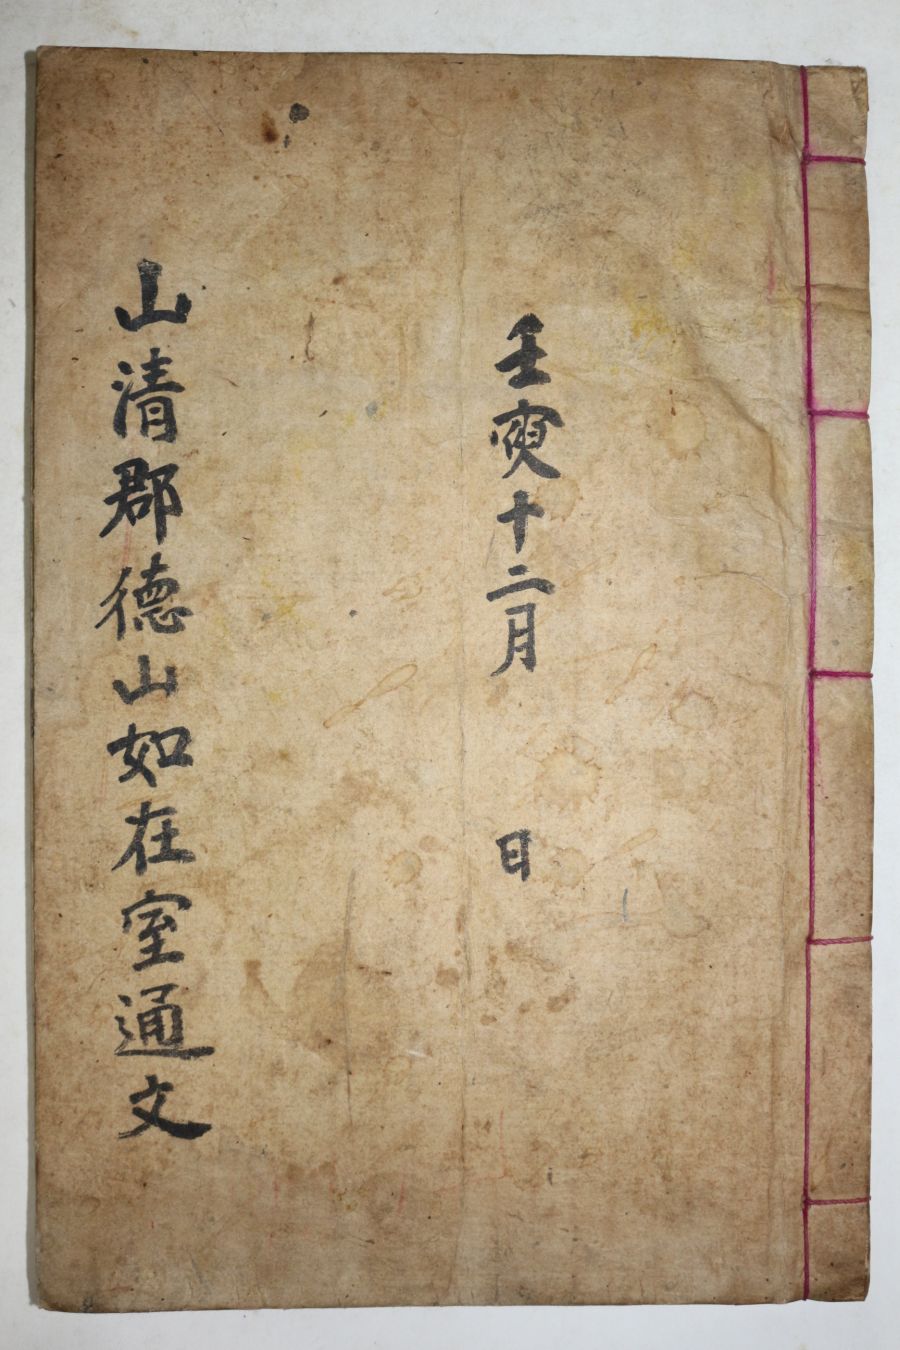 壬寅十二月 日
山清郡德山如在室通文